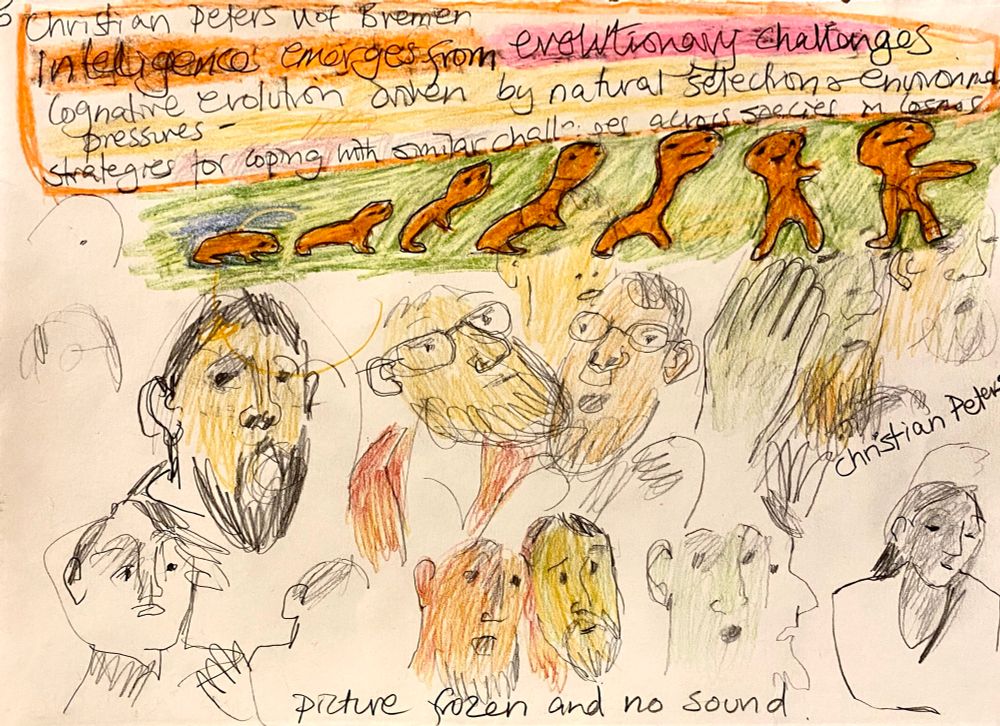 Christian Peters Uof Bremen
Intelligence emerges from evolutionary challanges
Cognative evolution driven by natural selection & environmental
pressures -
strategies for coping with similar challenges across species in cosmos
Christian Peters
picture frozen and no sound.